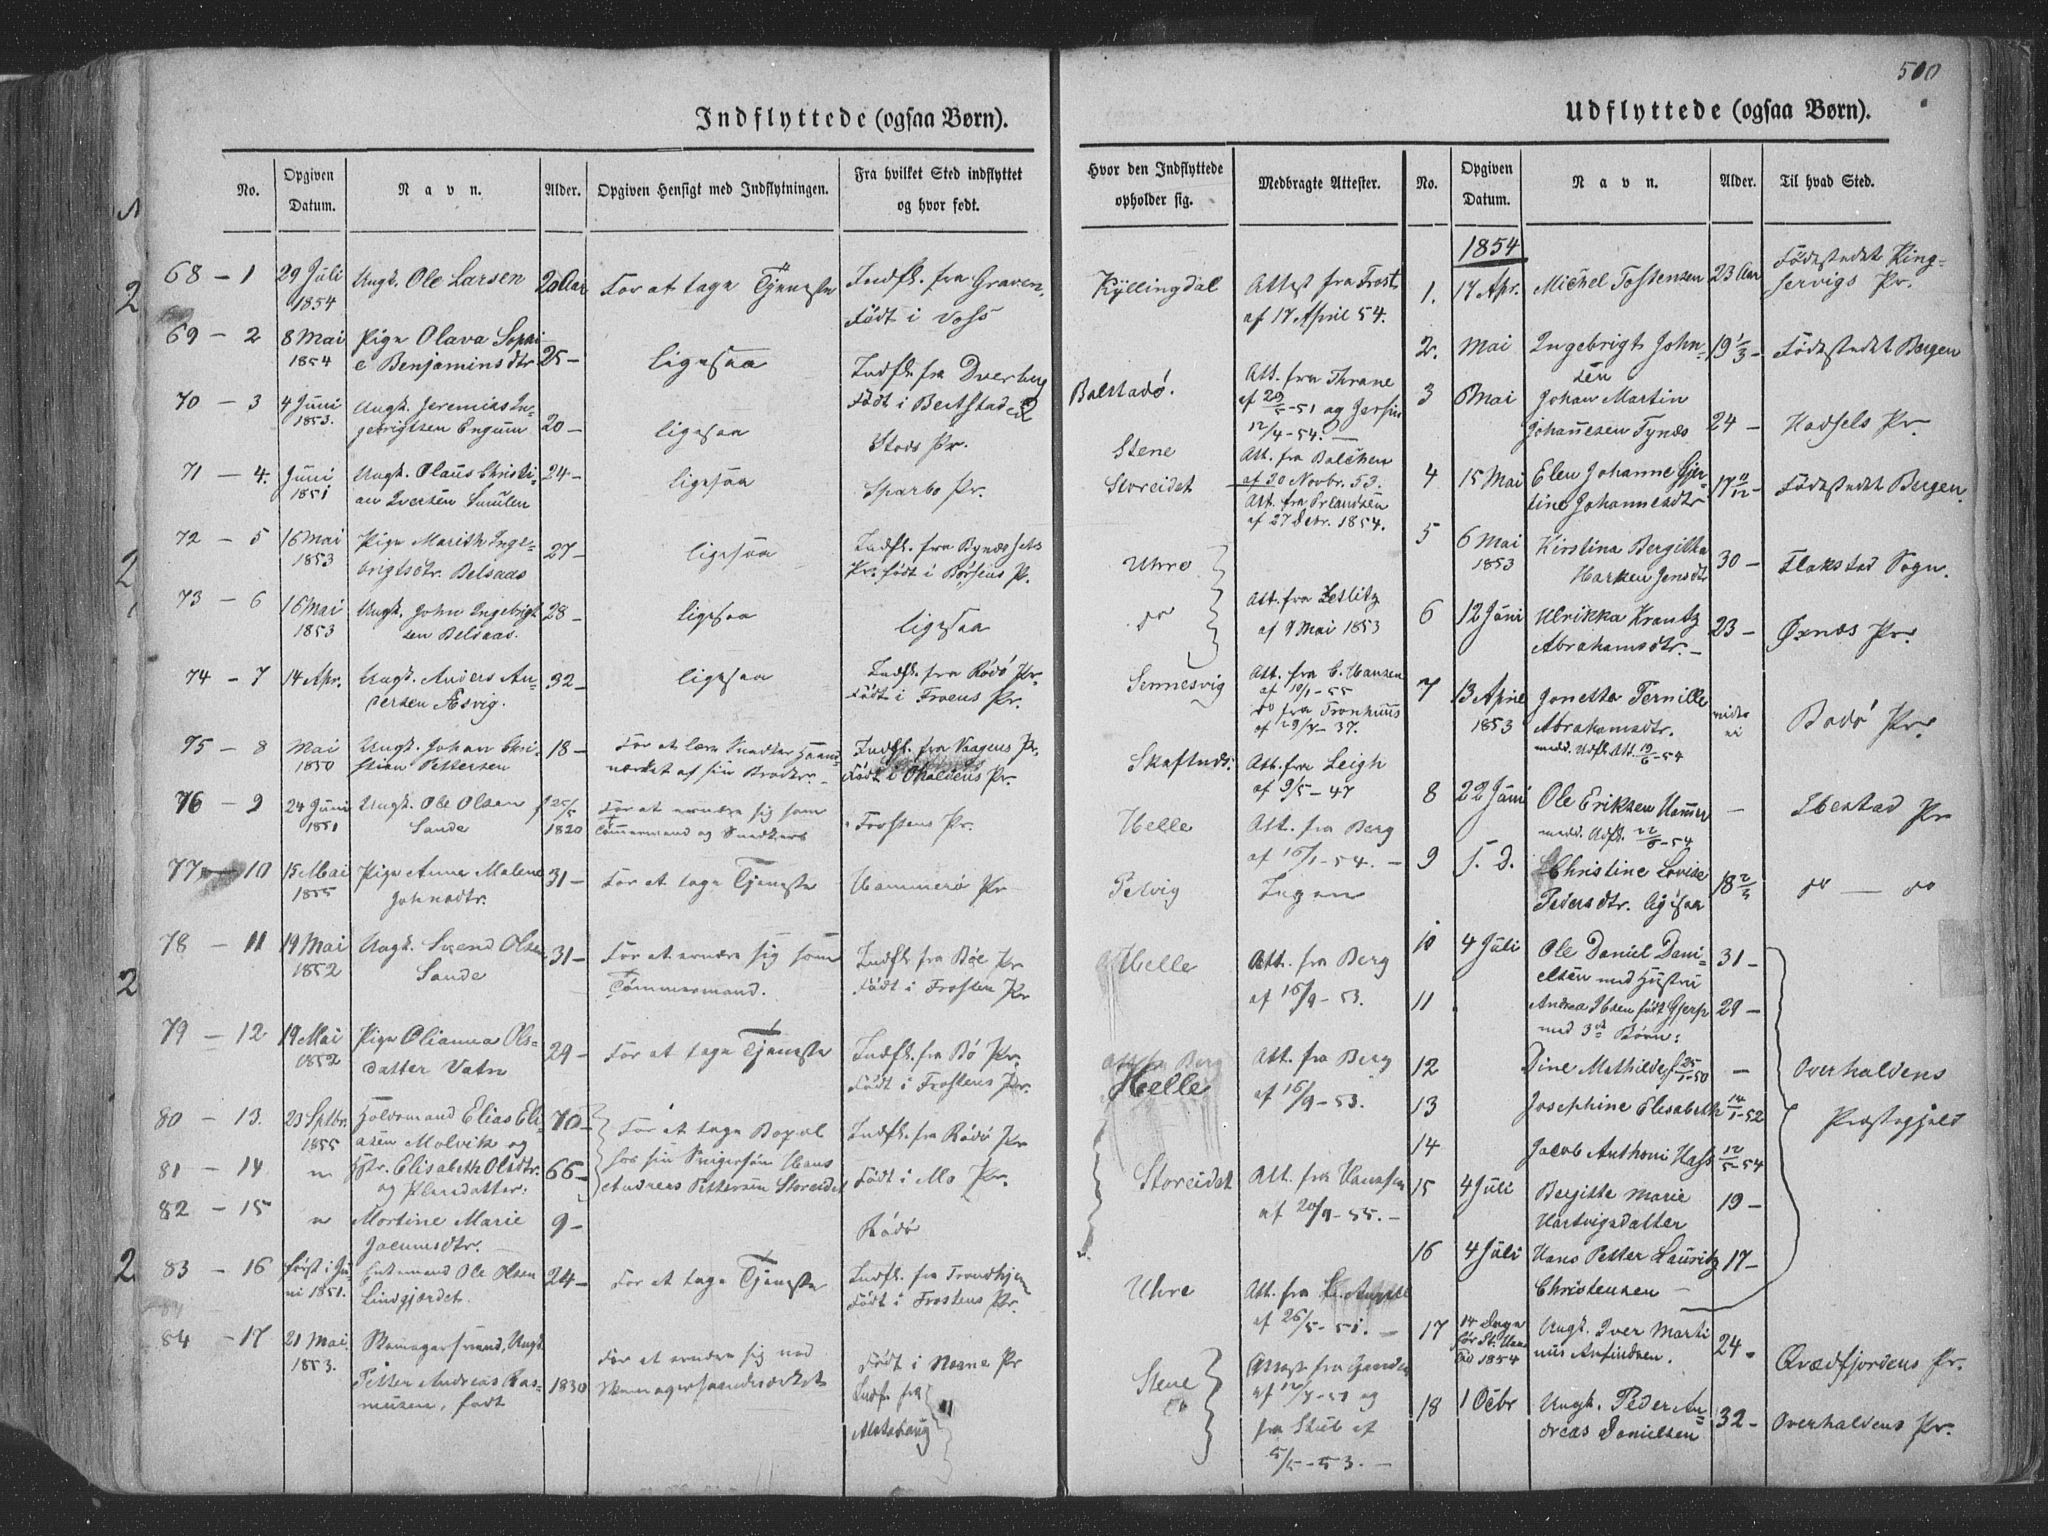 500
Indflyttede (ogsaa Børn).
No.
Opgiven Datum.
Navn.
Alder.
Opgiven Hensigt med Indflytningen.
Fra hvilket Sted indflyttet og hvor født.
68 - 1 29 Juli 1854 Ungk. Ole Larsen 20 Aar For at tage Tjeneste Indfl. fra Graven, Født i Voss
69 - 2 8 Mai 1854 Pige Olava Sophie Benjaminsdtr 25 - ligesaa Indfl. fra Dverberg Født i
70 - 3 4 Juni 1853. Ungk. Jeremias Ingebrigtsen 20 - ligesaa Stods Pr.
71 - 4. Juni 1851 Ungk. Olaus Christian Iversen 24 - ligesaa Sparbo Pr.
72 - 5 16 Mai 1853 Pige Marith Ingebrigtsdtr. Belsaas 27 - ligesaa Indfl. fra Bynæssets Pr. født i Børsens Pr.
73 - 6 16 Mai 1853 Ungk. John Ingebrigtsen Belsaas. 28 - ligesaa ligesaa
74 - 7 14 Apr. Ungk. Anders Andersen Æsvig. 32 - ligesaa Indfl. fra Rödö Pr. Födt i Froens Pr.
75 - 8 Mai 1850 Ungk. Johan Christian Pettersen 18 - For at lære Snedker Haandværket af sin Broder. - Indfl. fra Vaagens Pr. Født i Pr.
76 - 9 24 Juni 1851 Ungk. Ole Olsen Sande f 25/5 1820 For at ernære sig som Tømmermand og Snedker Frostens Pr.
77 - 10 15 Mai 1855 Pige Anne Malene Johnsdtr. 31 - For at tage Tjeneste Hammerö Pr
78 - 11 19 Mai 1852 Ungk. Svend Olsen Sande 31 - For at ernære sig som Tømmermand. Indfl. fra Böe Pr Födt i Frosten Pr
79 - 12 19 Mai 1852 Pige Olianna Olsdatter Vatn 29 - For at tage Tjeneste Indfl. fra Bö Pr. Födt i Frostens Pr.
80 - 13. 23 Sptbr. 1855 Elias Eliasen Molvik og 70 - For at tage Bopæl Indfl. fra Rödö Pr
81 - 14 " Hstr. Elisabeth Olsdtr. og Pleiedatter: 66 - hos sin Svigersön Hans Andreas Pettersen Storeidet Födt i Mo Pr.
82 - 15 " Mortine Marie Jacunsdtr. - 9 - Rödö
83 - 16 först i Juni 1851. Enkemand Ole Olsen Lindgjerdet 24 - For at tage Tjeneste Indfl. fra Trondhjem Födt i Frostens Pr.
84 - 17 21 Mai 1853. Bømagersvend, Ungk. Petter Andreas Rasmusen, født 1830 For at ernære sig ved Födt i Nesne Pr Indfl. fra Alstahaug
Hvor den Indflyttede opholder sig.
Medbragte Attester.
Kyllingdal Attest fra Frost af 17 April 54.
Balstadö. Att. fra Thrane af 29/5-51 og Jersin 12/4-54. -
Stene Att. fra Balchen af 30 Novbr. 53.
Storeidet Att. fra Erlandsen af 27 Debr. 1854.
Uhre
do Att. fra Zetlitz af 9 Mai 1853
Sennesvig Att. fra C. Hansen af 10/1-55 do fra Tronhuus af 29/7-37.
Skaftnæs. Att. fra Leigh af 9/5-47
Helle Att. fra Berg af 16/1-54. -
Petvig Ingen
Helle Att. fra Berg af 16/9-53.
Helle Att. fra Berg af 16/9-53.
Storeidet Att. fra Hanssen af 20/9-55. -
Uhre Att. fra L. af 26/5-51. -
Stene Attest fra af 12/7-51 og fra Stub af 5/5-53. -
Udflyttede (ogsaa Børn).
No.
Opgiven Datum.
Navn.
Alder.
Til hvad Sted.
1854
1. 17 Apr. Michel Tostensen 23 Aar Födestedet Kingservigs Pr.
2. Mai Ingebrigt Johnsen 19 1/3 - Födestedet Bergen
3 8 Mai Johan Martin Johannesen Tynæs 24 - Hadsels Pr.
4 15 Mai Elen Johanne Gjertine Johannesdtr 17 11/12 - Födestedet Bergen.
5 6 Mai 1853 Kirstina Bergitta Harken Jensdtr 30 - Flakstad Sogn.
6 12 Juni Ulrikka Krantz Abrahamsdtr. - 23 - Öxnæs Pr.
7 13 April 1853 Jonetta Pernille Abrahamsdtr. medd. Udfl. Att. 19/6-54 Bodö Pr.
8 22 Juni Ole Eriksen medd. Udfl. 22/6-54 - Ibestad Pr
9 s. d. Christine Lovise Pedersdtr. ligesaa 18 2/3 do - do
10 4 Juli Ole Daniel Danielsen med Hustru 31 -
11 Andrea Ibsen født Gjerp med 3de Børn: 29 -
12 Dine Mathilde, f 25/1-50 - Overhaldens
13 Josephine Elisabeth 14/1-52 Præstegjeld
14 Jacob Anthoni Hass 12/5-54
15 4 Juli Bergitte Marie Hartvigsdatter 19 -
16 4 Juli Hans Petter Lauritz Christensen - 17 -
17 14 Dage før St. Hans Tid 1854 Ungk. Iver Martinus Arfindsen. 24 - Qvædfjordens Pr.
18 1 Octbr Ungk. Peder Andreas Danielsen 32 - Overhaldens Pr.